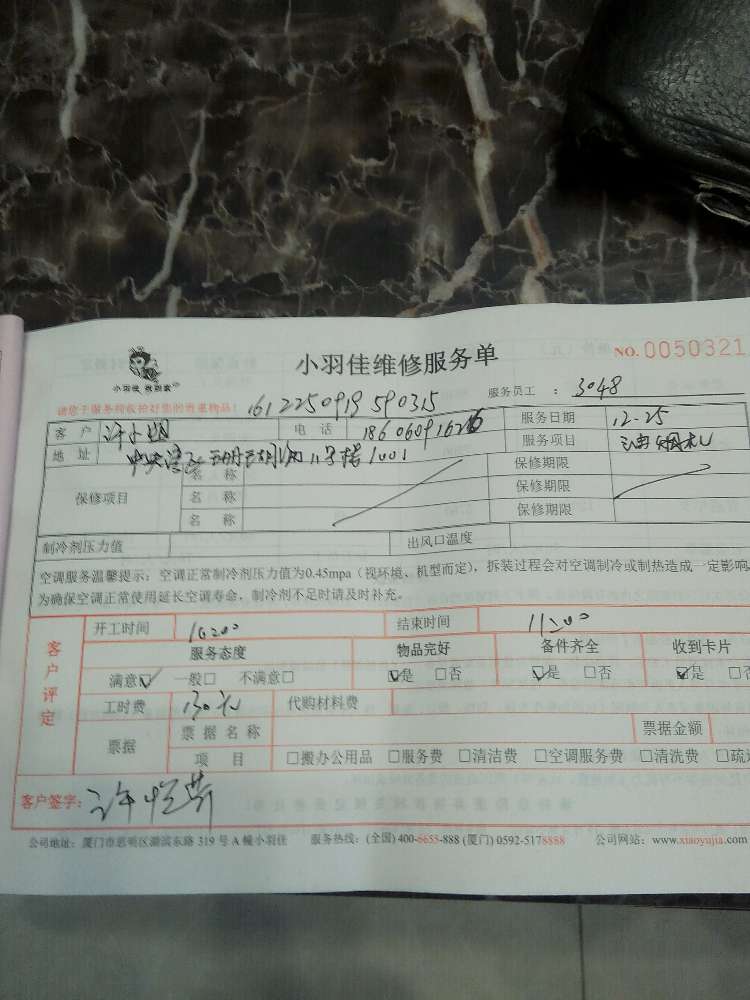 小羽佳 我到家
小羽佳维修服务单
NO. 0050321
请您于服务前收拾好您的贵重物品！
1612250919590315
服务员工 ： 3048
客 户 许小姐 电 话 18606091626 服务日期 12-25
地 址 中央 11号楼1001 服务项目 油烟机
保修项目 名 称 保修期限
名 称 保修期限
名 称 保修期限
制冷剂压力值 出风口温度
空调服务温馨提示：空调正常制冷剂压力值为0.45mpa（视环境、机型而定），拆装过程会对空调制冷或制热造成一定影响，
为确保空调正常使用延长空调寿命，制冷剂不足时请及时补充。
客户评定
开工时间 10:00 结束时间 11:00
服务态度 物品完好 备件齐全 收到卡片
满意☑ 一般□ 不满意□ ☑是 □否 ☑是 □否 ☑是 □否
工时费 130元 代购材料费
票据 票据名称 票据金额
项 目 □搬办公用品 □服务费 □清洁费 □空调服务费 □清洗费 □疏
客户签字：许
公司地址：厦门市思明区湖滨东路 319 号 A 幢小羽佳 服务热线：(全国) 400-6655-888 (厦门) 0592-5178888 公司网站：www.xiaoyujia.com